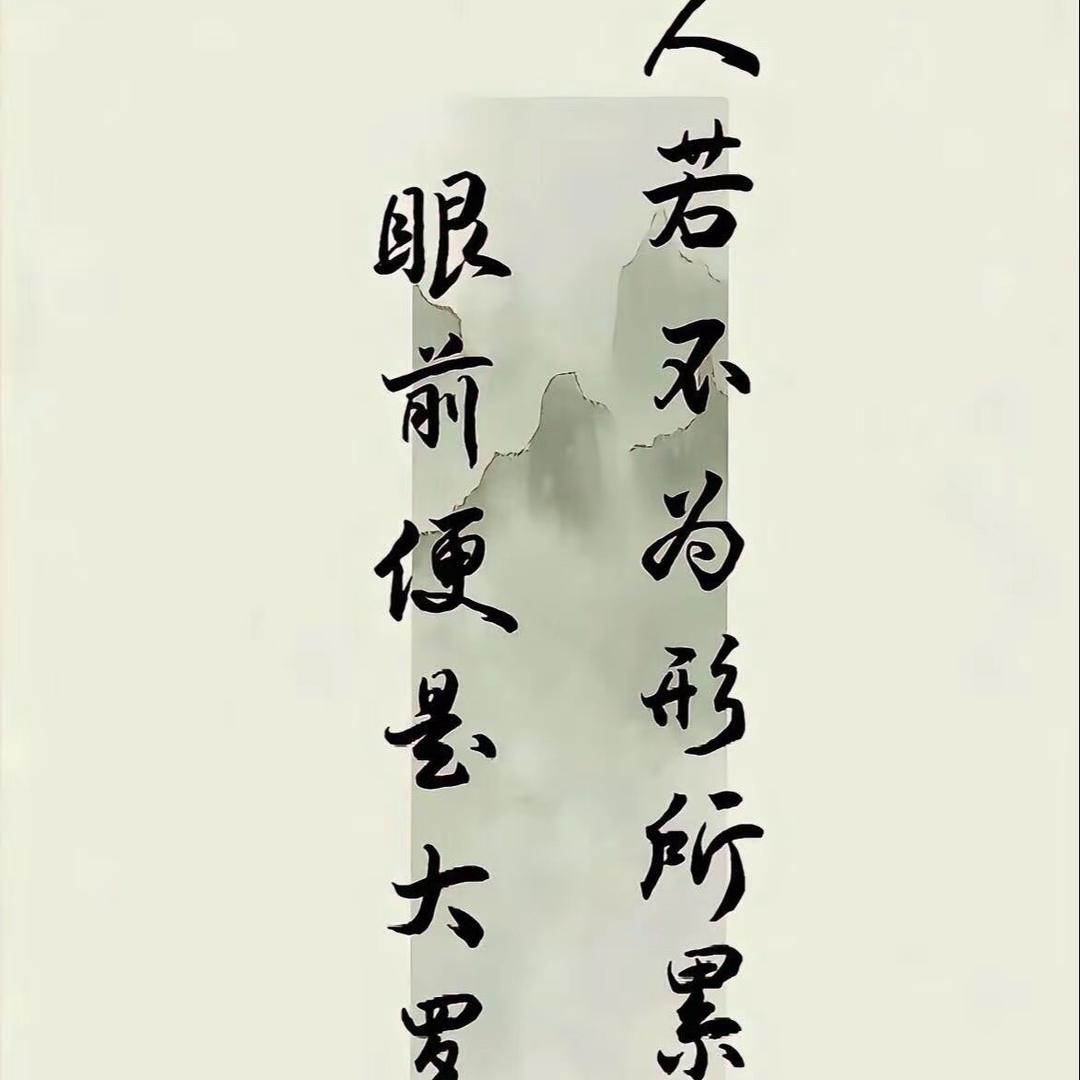 人若不为形所累
眼前便是大罗